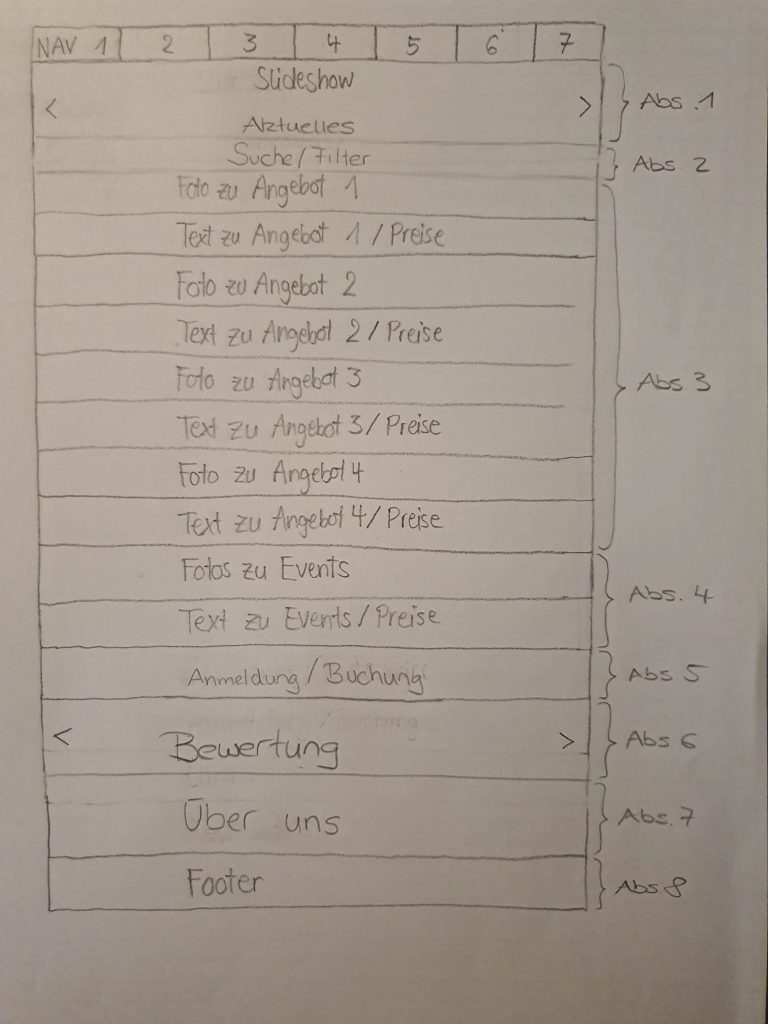 NAV 1 2 3 4 5 6 7
Slideshow
< >
Abs. 1
Aktuelles
Suche/Filter
Abs 2
Foto zu Angebot 1
Text zu Angebot 1 / Preise
Foto zu Angebot 2
Text zu Angebot 2 / Preise
Foto zu Angebot 3
Abs 3
Text zu Angebot 3 / Preise
Foto zu Angebot 4
Text zu Angebot 4 / Preise
Fotos zu Events
Abs. 4
Text zu Events / Preise
Anmeldung / Buchung
Abs 5
< >
Bewertung
Abs 6
Über uns
Abs. 7
Footer
Abs 8